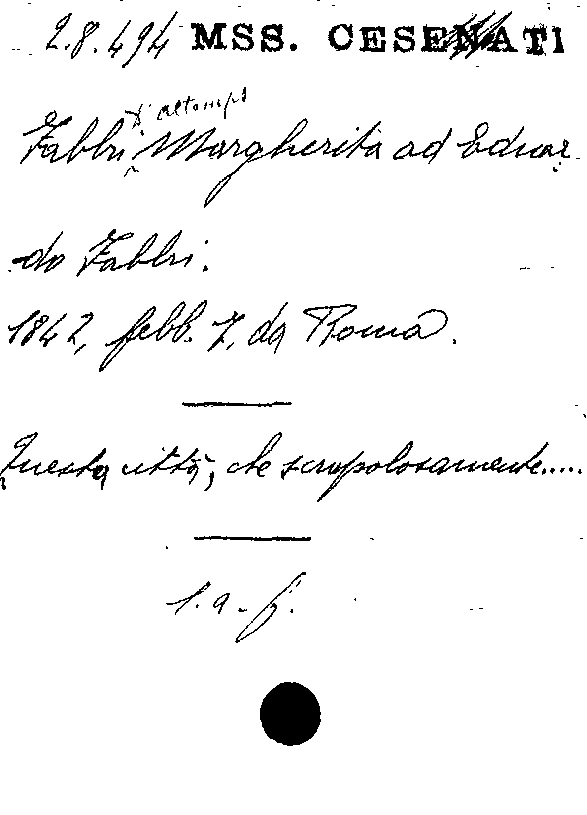 2.8.494 MSS. CESENATI
d'Altemps
Fabbri, Margherita ad Eduar
do Fabbri.
1842, febb. 7, da Roma.
Questa città, che scrupolosamente.....
l. a. f.